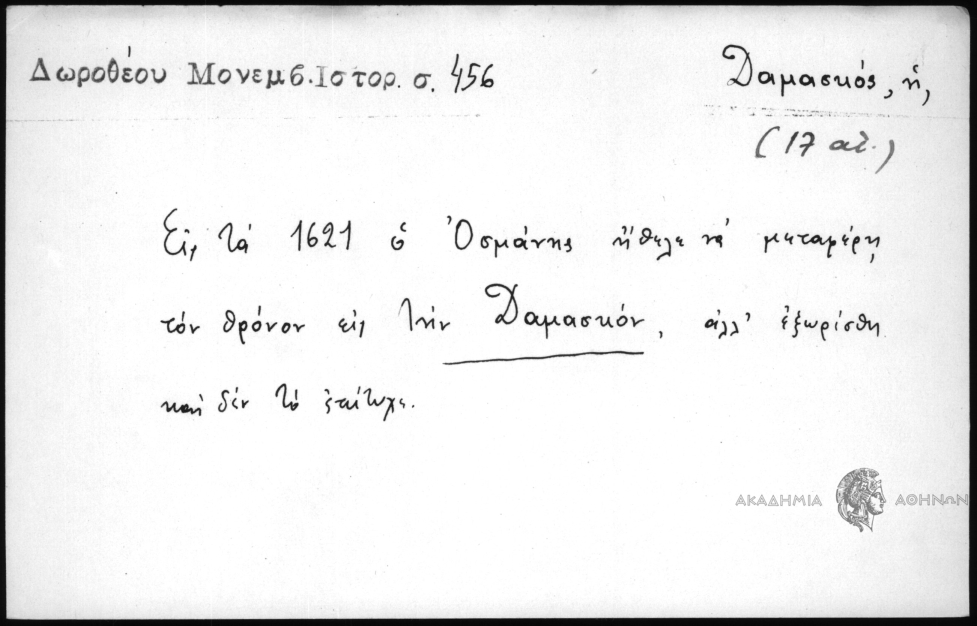 Δωροθέου Μονεμβ. Ιστορ. σ. 456
Δαμασκός, ἡ,
(17 αἰ.)
Εἰς τὰ 1621 ὁ Ὀσμάνης ἤθελε νὰ μεταφέρῃ
τὸν θρόνον εἰς τὴν Δαμασκόν, ἀλλ' ἐξωρίσθη
καὶ δὲν τὸ ἐπίτυχε.
ΑΚΑΔΗΜΙΑ ΑΘΗΝΩΝ